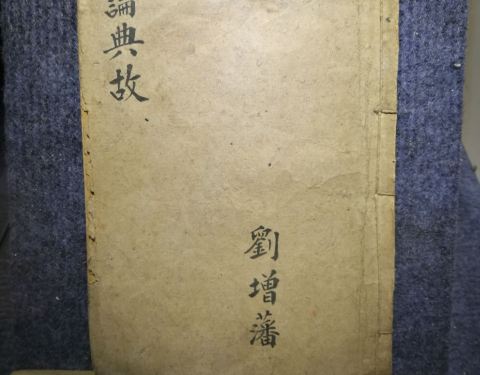 論典故
劉增藩